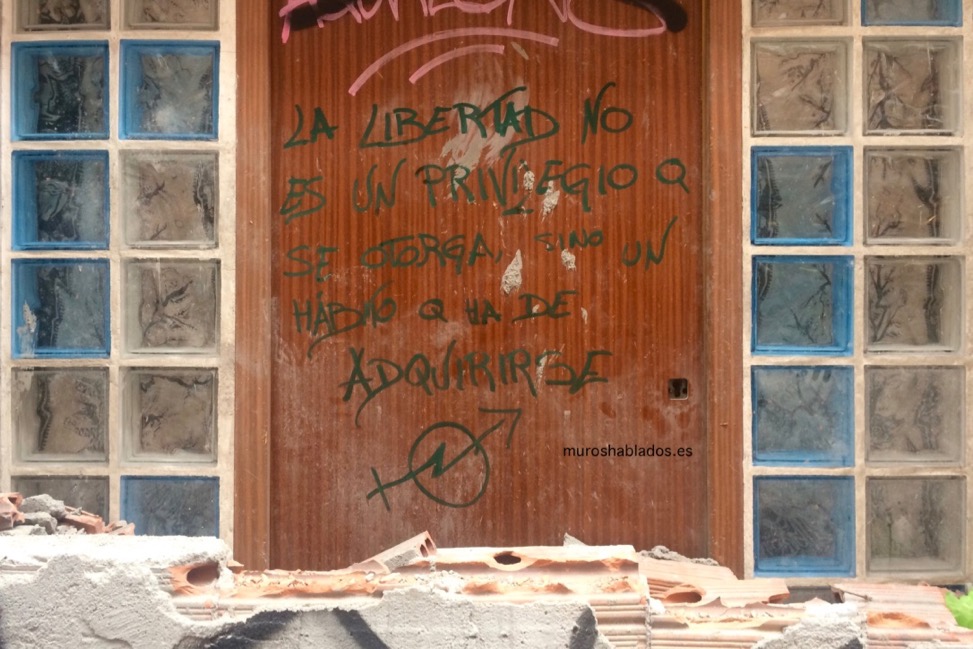 LA LIBERTAD NO
ES UN PRIVILEGIO Q
SE OTORGA, SINO UN
HÁBITO Q HA DE
ADQUIRIRSE
muroshablados.es